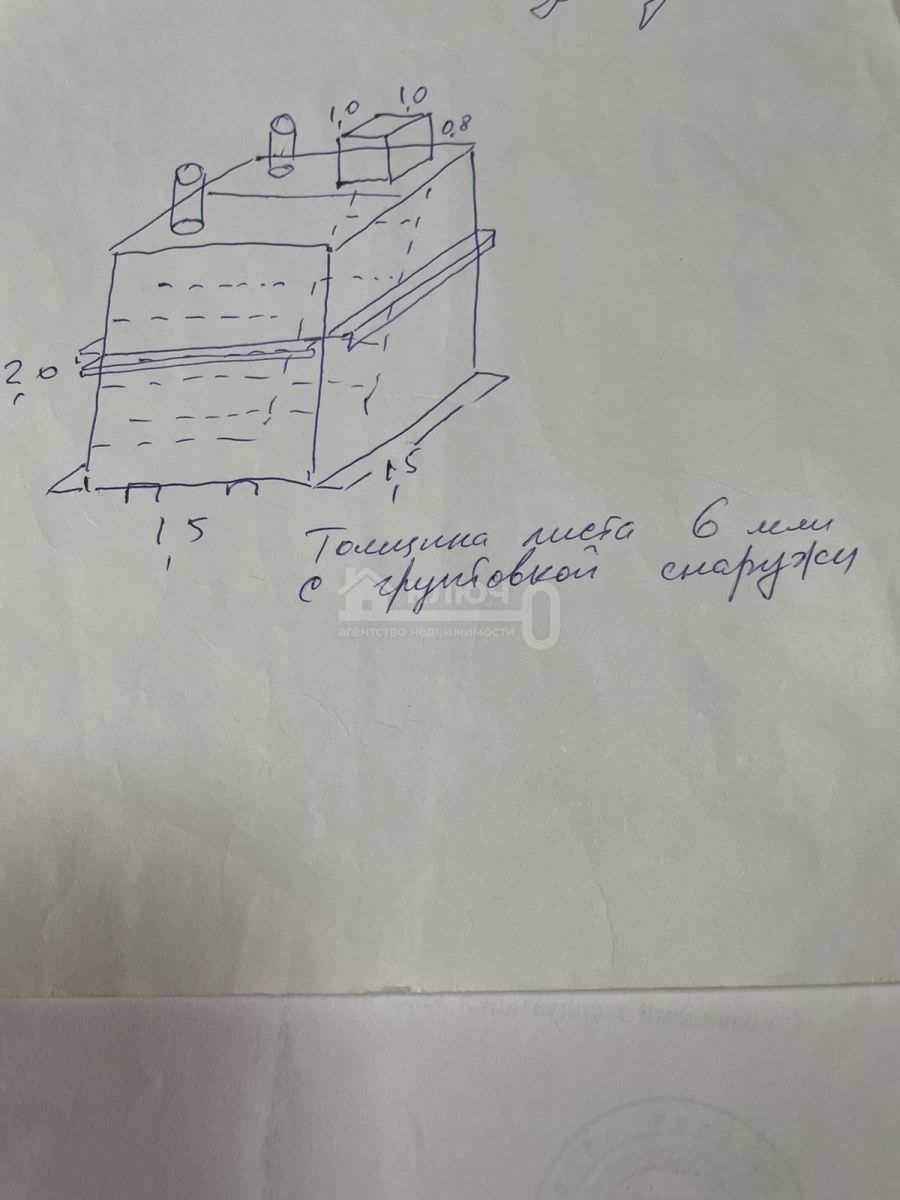 1,0
1,0
0,8
2,0
1,5
1,5
Толщина листа 6 мм
с грунтовкой снаружи
КЛЮЧ
агентство недвижимости